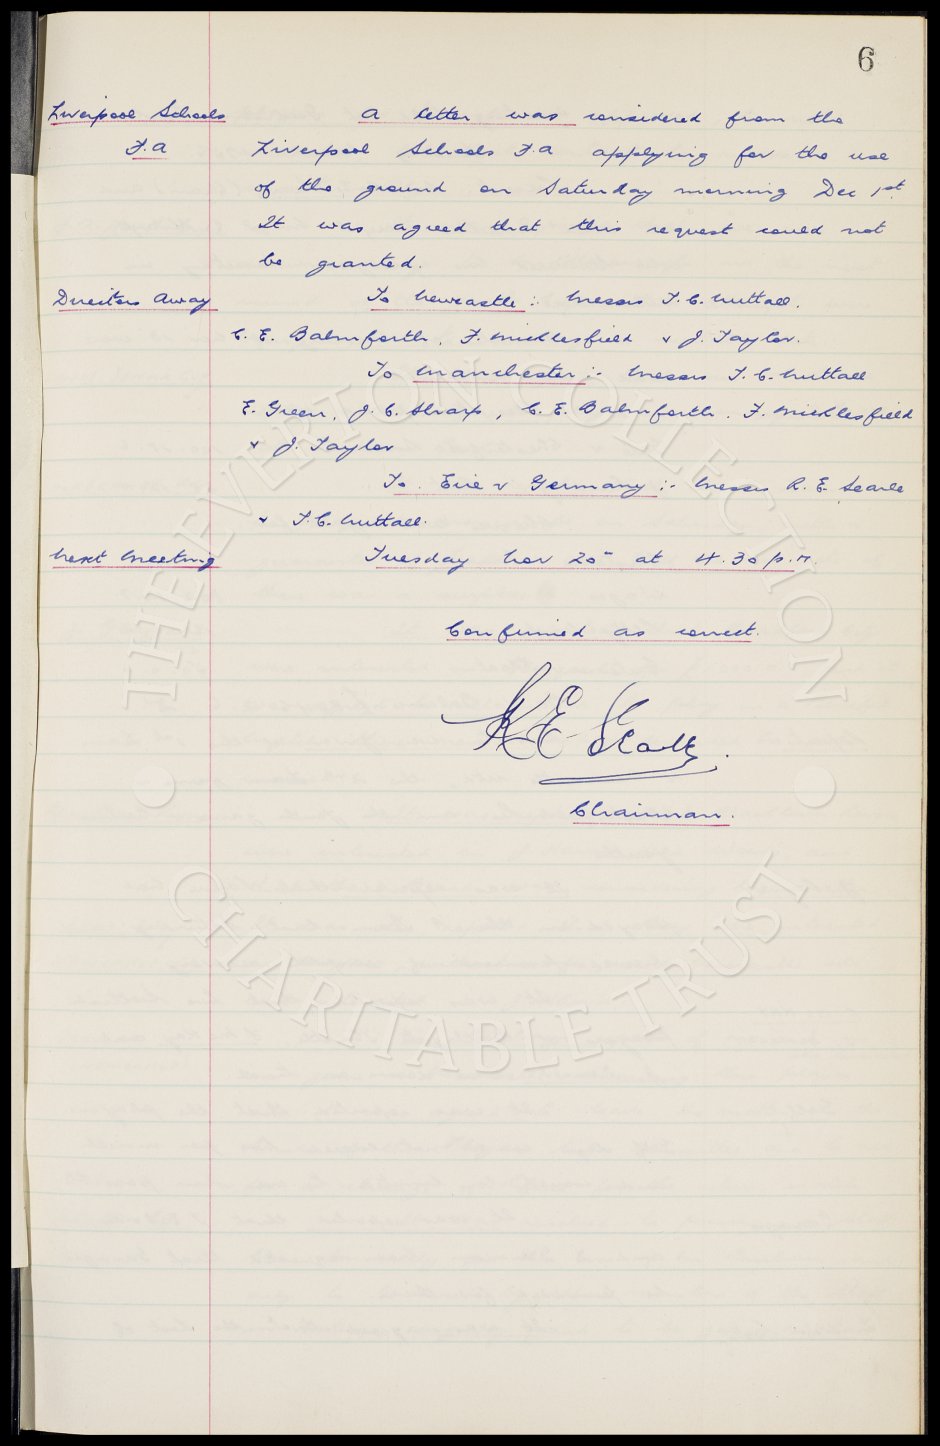 6
Liverpool Schools A letter was considered from the
F.A Liverpool Schools F.A applying for the use
of the ground on Saturday morning Dec 1st.
It was agreed that this request could not
be granted.
Directors Away To Newcastle :- Messrs T. C. Nuttall.
C. E. Balmforth, F. Micklesfield & J. Taylor.
To Manchester :- Messrs T. C. Nuttall
E. Green, J. C. Sharp, C. E. Balmforth. F. Micklesfield
& J. Taylor
To Eire & Germany :- Messrs R. E. Searle
& T. C. Nuttall.
Next Meeting Tuesday Nov 20 at 4.30 p.m.
Confirmed as correct.
Chairman.
THE EVERTON COLLECTION
CHARITABLE TRUST